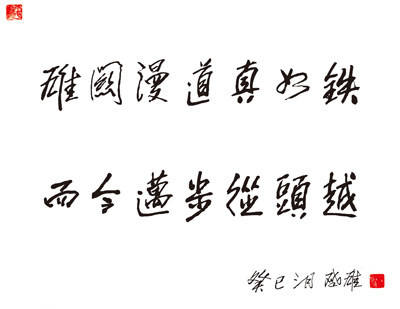 雄關漫道真如鉄
而今邁步從頭越
癸巳月雄